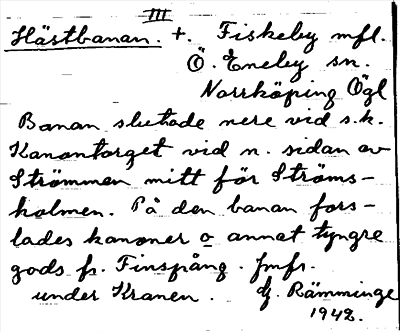 III
Hästbanan. +. Fiskeby mfl.
Ö. Eneby sn.
Norrköping Ögl
Banan slutade nere vid s.k.
Kanontorget vid n. sidan av
Strömmen mitt för Ströms-
holmen. På den banan fors-
lades kanoner o annat tyngre
gods fr. Finspång. Jmfr.
under Kranen. Hj. Rämminge
1942.